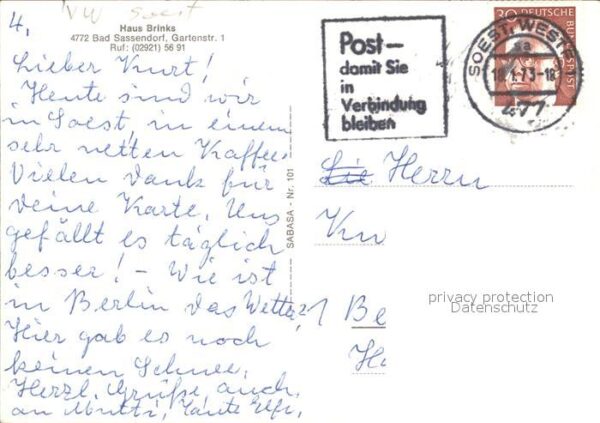 4.
VW Soest
Haus Brinks
4772 Bad Sassendorf, Gartenstr. 1
Ruf: (02921) 56 91
Lieber Kurt!
Heute sind wir
in Soest, in einem
sehr netten Kaffee.
Vielen Dank für
deine Karte. Uns
gefällt es täglich
besser! – Wie ist
in Berlin das Wetter?
Hier gab es noch
keinen Schnee.
Herzl. Grüße, auch
an Mutti, Tante Elfr.
SABASA - Nr. 101
Post–
damit Sie
in
Verbindung
bleiben
SOEST, WESTF
sa
18.1.73-18
477
30 DEUTSCHE
BUNDESPOST
Herrn
Ku
1 Be
H
privacy protection
Datenschutz